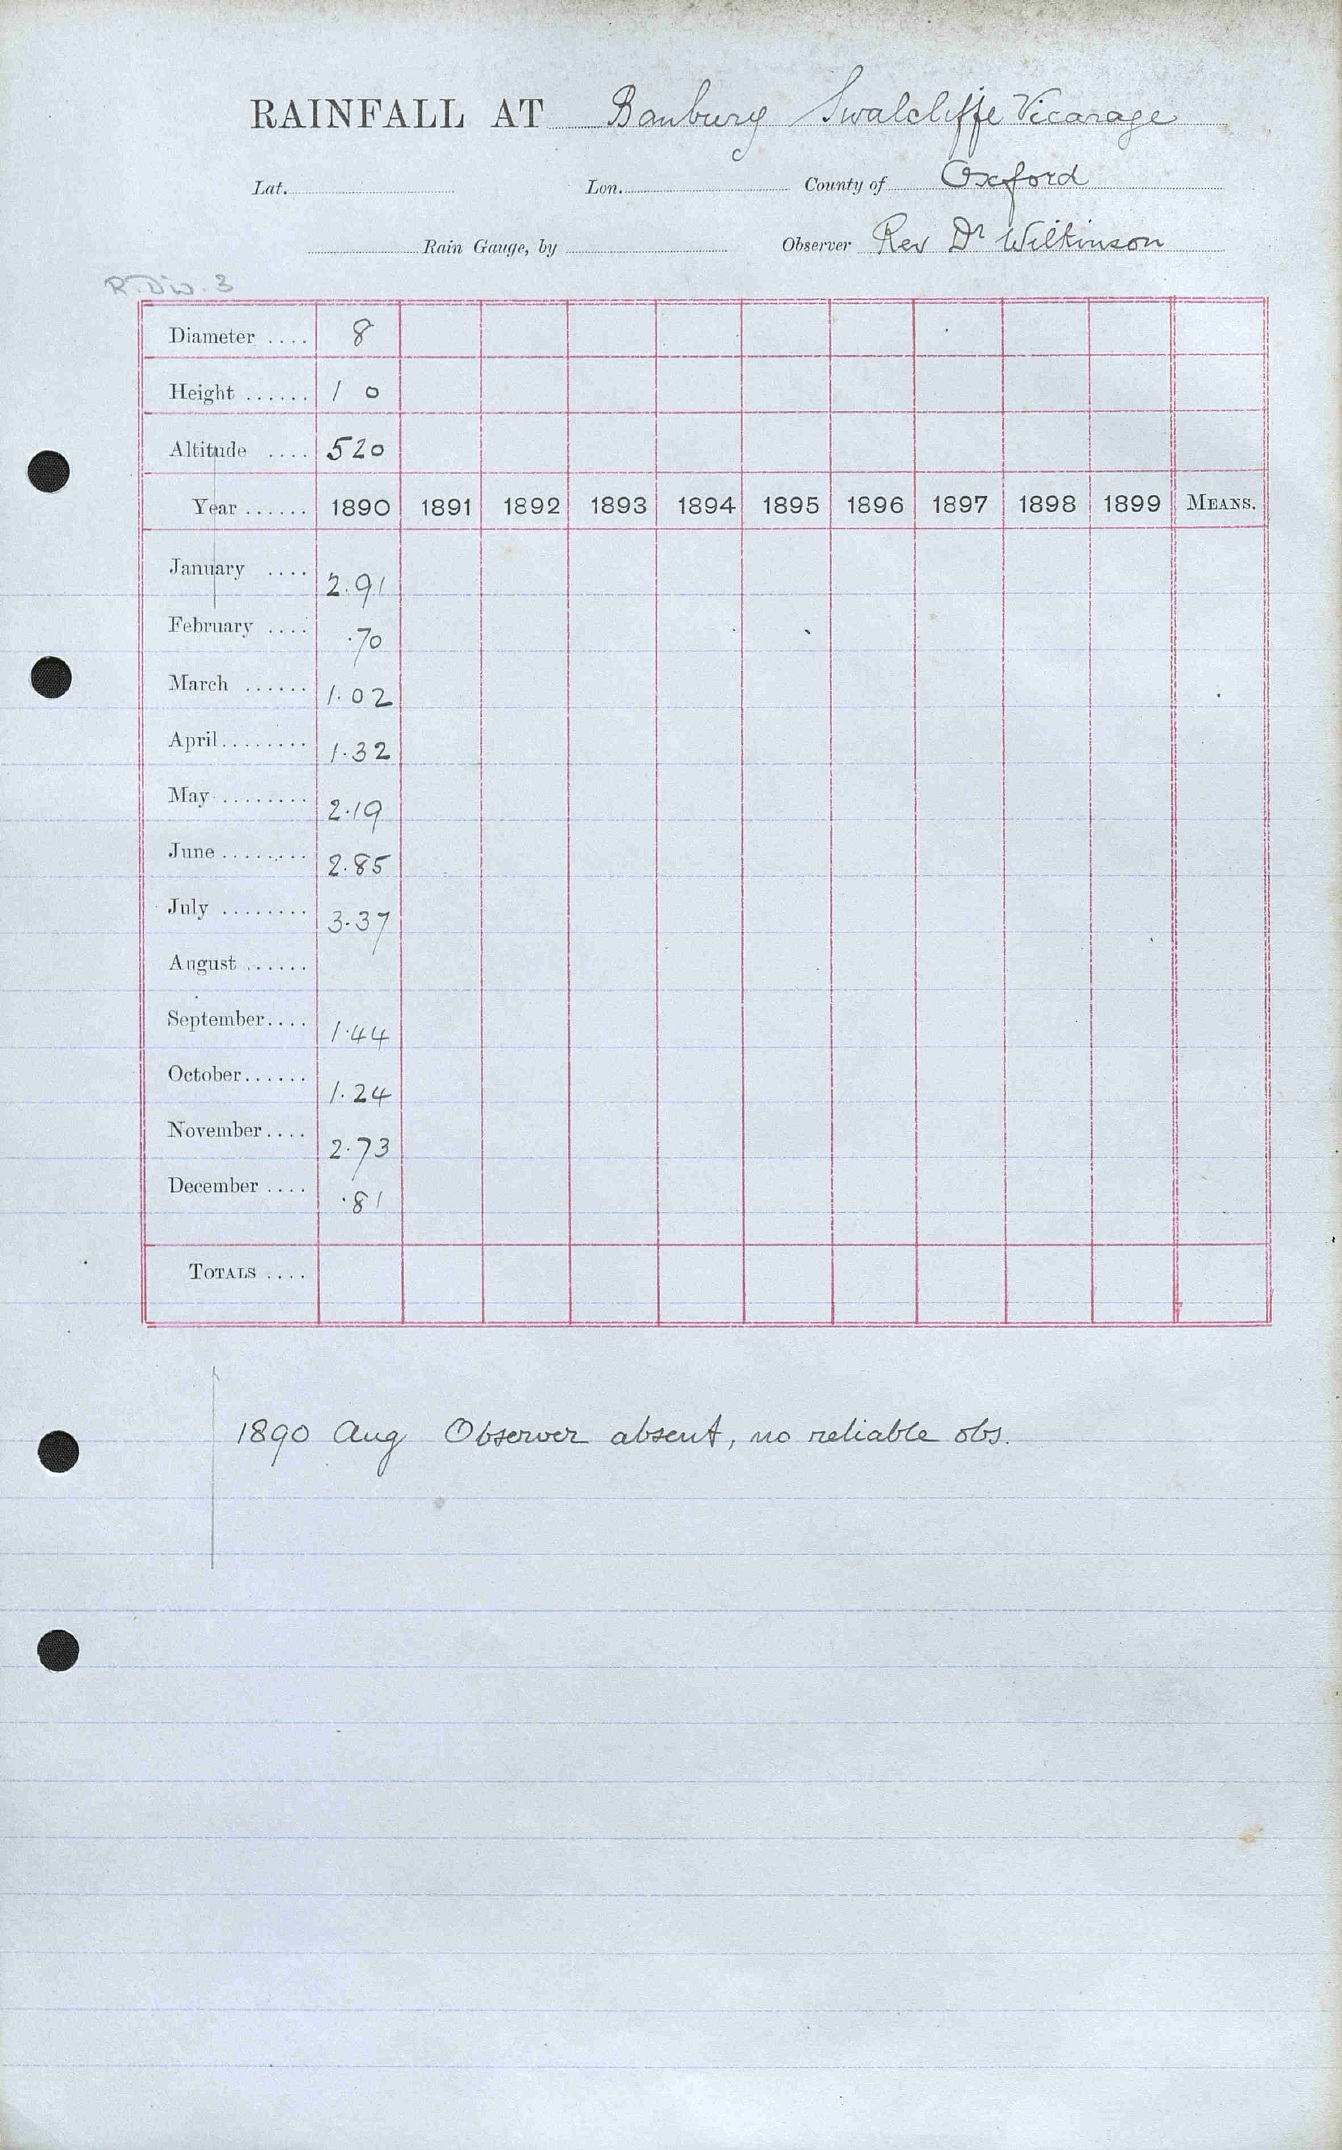 RAINFALL AT Banbury Swalcliffe Vicarage
Lat. Lon. County of Oxford
Rain Gauge, by Observer Rev Dr Wilkinson
R. Div. 3
Diameter .... 8
Height ...... 1 0
Altitude .... 520
Year ...... 1890 1891 1892 1893 1894 1895 1896 1897 1898 1899 MEANS.
January .... 2.91
February .... .70
March ...... 1.02
April ........ 1.32
May ........ 2.19
June ........ 2.85
July ........ 3.37
August ......
September .... 1.44
October ...... 1.24
November .... 2.73
December .... .81
TOTALS ....
1890 Aug Observer absent, no reliable obs.